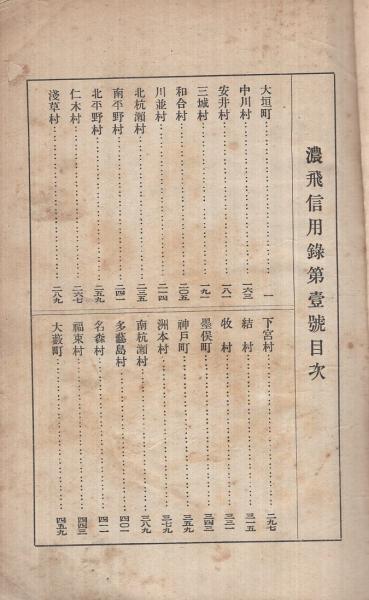 濃飛信用錄第壹號目次
大垣町…………一
中川村…………一六三
安井村…………一八一
三城村…………一九一
和合村…………二〇五
川並村…………二一四
北杭瀬村…………二三五
南平野村…………二四一
北平野村…………二五九
仁木村…………二六七
淺草村…………二八九
下宮村…………二九七
結村…………三一五
牧村…………三三一
墨俣町…………三四三
神戸町…………三五九
洲本村…………三七九
南杭瀬村…………三八九
多藝島村…………四〇一
名森村…………四一一
福束村…………四四三
大藪町…………四五九